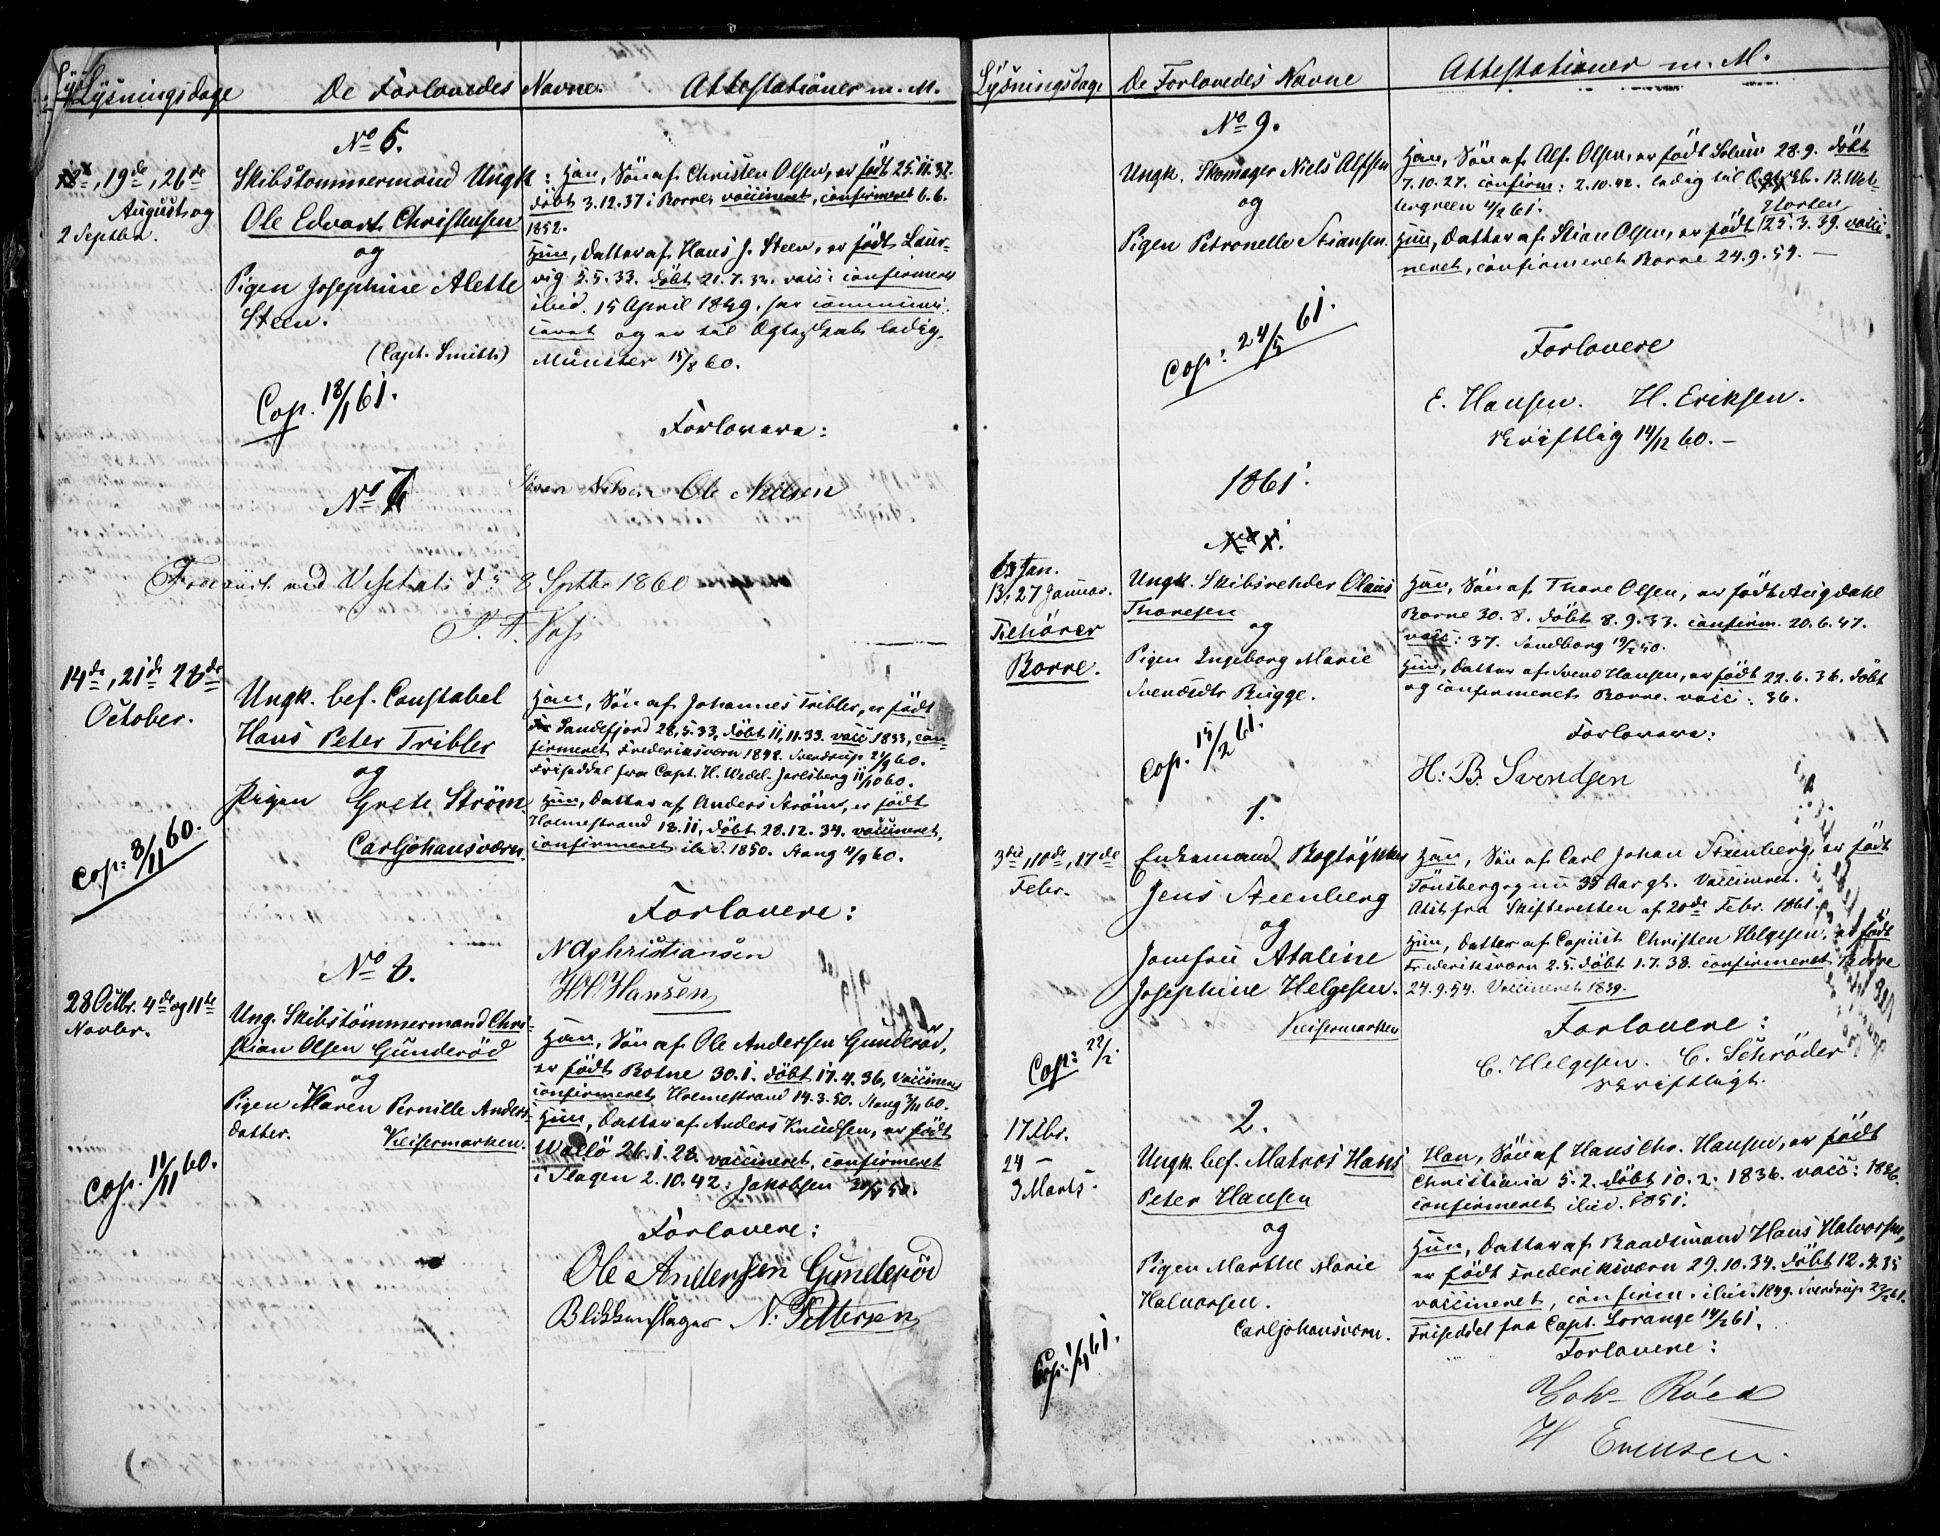 Lysningsdage
De Forlovedes Navne.
Attestationer m. M.
No 6.
19de, 26de
August og
2 Septbr.
Skibstømmermand Ungk:
Ole Edvart Christensen
og
Pigen Josephine Alette
Steen.
(Capt. Smith)
Cop. 18/1 61.
Han, Søn af Christen Olsen, er født 25.11.37.
döbt 3.12.37 i Borre, vaccineret, confirmeret 6.6.
1852.
Hun, Datter af Hans J. Steen, er født Laur-
vig 5.5.33. döbt 21.7.33. vacc: confirmeret
ibid. 15 April 1849. har communi-
ceret og er til Ægteskab ledig.
Münster 15/8 60.
Forlovere:
Søren Nilsen Ole Nielsen
No 7
Fremvist ved Visitats d. 8 Septbr 1860
14de, 21de 28de
October.
Ungk. bef. Constabel
Hans Peter Tribler
og
Pigen Grete Strøm.
Carljohansværn.
Cop: 8/11 60.
Han, Søn af Johannes Tribler, er født
Sandefjord 28.5.33, döbt 11.11.33. vacc 1833, con-
firmeret Frederiksværn 1848. Sverdrup 21/9 60.
Friseddel fra Capt. H. Wedel-Jarlsberg 11/10 60.
Hun, Datter af Anders Strøm, er født
Holmestrand 18.11, döbt 28.12.34. vaccineret,
confirmeret ibid. 1850. Stang 4/9 60.
Forlovere:
N A Christiansen
H H Hansen
No 8.
28 Octbr. 4de og 11te
Novbr.
Ung. Skibstömmermand Chri-
stian Olsen Gunderöd
og
Pigen Maren Pernille Anders-
datter. Keisermarken.
Cop. 11/11 60.
Han, Søn af Ole Andersen Gunderöd,
er født Botne 30.1. döbt 17.4.36, vaccineret
confirmeret Holmestrand 14.3.50. Stang 3/11 60.
Hun, Datter af Anders Knudsen, er født
Wallö 26.1.28. vaccineret, confirmeret
i Slagen 2.10.42. Jakobsen
Forlovere:
Ole Andersen Gunderöd
Blikkenslager N. Pettersen
Lysningsdage
De Forlovedes Navne
Attestationer m. M.
No 9.
Ungk. Skomager Niels Alfsen
og
Pigen Petronelle Stiansen.
Cop: 24/5 61.
Han, Søn af Alf Olsen, er født Solum 28.9. döbt
7.10.27. confirm: 2.10.42. ledig til
4/2 61.
Horten
Hun, Datter af Stian Olsen, er født 25.3.39. vacci-
neret, confirmeret Borre 24.9.54. —
Forlovere
E. Hansen. H. Eriksen.
skriftlig 14/12 60. —
1861.
No 1.
6 Jan.
13, 27 Januar.
Tilhører
Borre.
Ungk. Skibsreder Olaus
Thoresen
og
Pigen Ingeborg Marie
Svendsdtr Bugge.
Cop. 15/2 61.
Han, Søn af Thore Olsen, er født Augdahl
Borre 30.8. döbt 8.9.33. confirm. 20.6.47.
vacc: 37. Sandborg
Hun, Datter af Svend Hansen, er født 22.6.36. döbt
og confirmeret Borre. vacc: 36.
Forlovere:
H: B. Svendsen
1.
3die, 10de, 17de
Febr.
Enkemand Bogtrykker
Jens Steenberg
og
Jomfru Ataline
Josephine Helgesen.
Keisermarken
Cop: 22/2.
Han, Søn af Carl Johan Steenberg, er født
Tönsberg og nu 35 Aar gl. Vaccineret.
Attst fra Skifteretten af 20de Febr. 1861.
Hun, Datter af Copiist Christen Helgesen, er født
Frederiksværn 2.5. döbt 1.7.38. confirmeret Borre
24.9.54. Vaccineret 1839.
Forlovere:
C. Helgesen. C. Schrøder
skriftligt.
2.
17 Fbr.
24 —
3 Marts.
Ungk. bef. Matros Hans
Peter Hansen
og
Pigen Marthe Marie
Halvorsen.
Carljohansværn.
Han, Søn af Hans Chr. Hansen, er født
Christiania 5.2. döbt 10.2. 1836. vacc: 1836.
confirmeret ibid. 1851.
Hun, Datter af Baadsmand Hans Halvorsen,
er født Frederiksværn 29.10.34. döbt 12.4.35
vaccineret, confirm. ibid: 1849. Sverdrup 22/2 61.
Friseddel fra Capt. Lorange 14/2 61.
Forlovere: